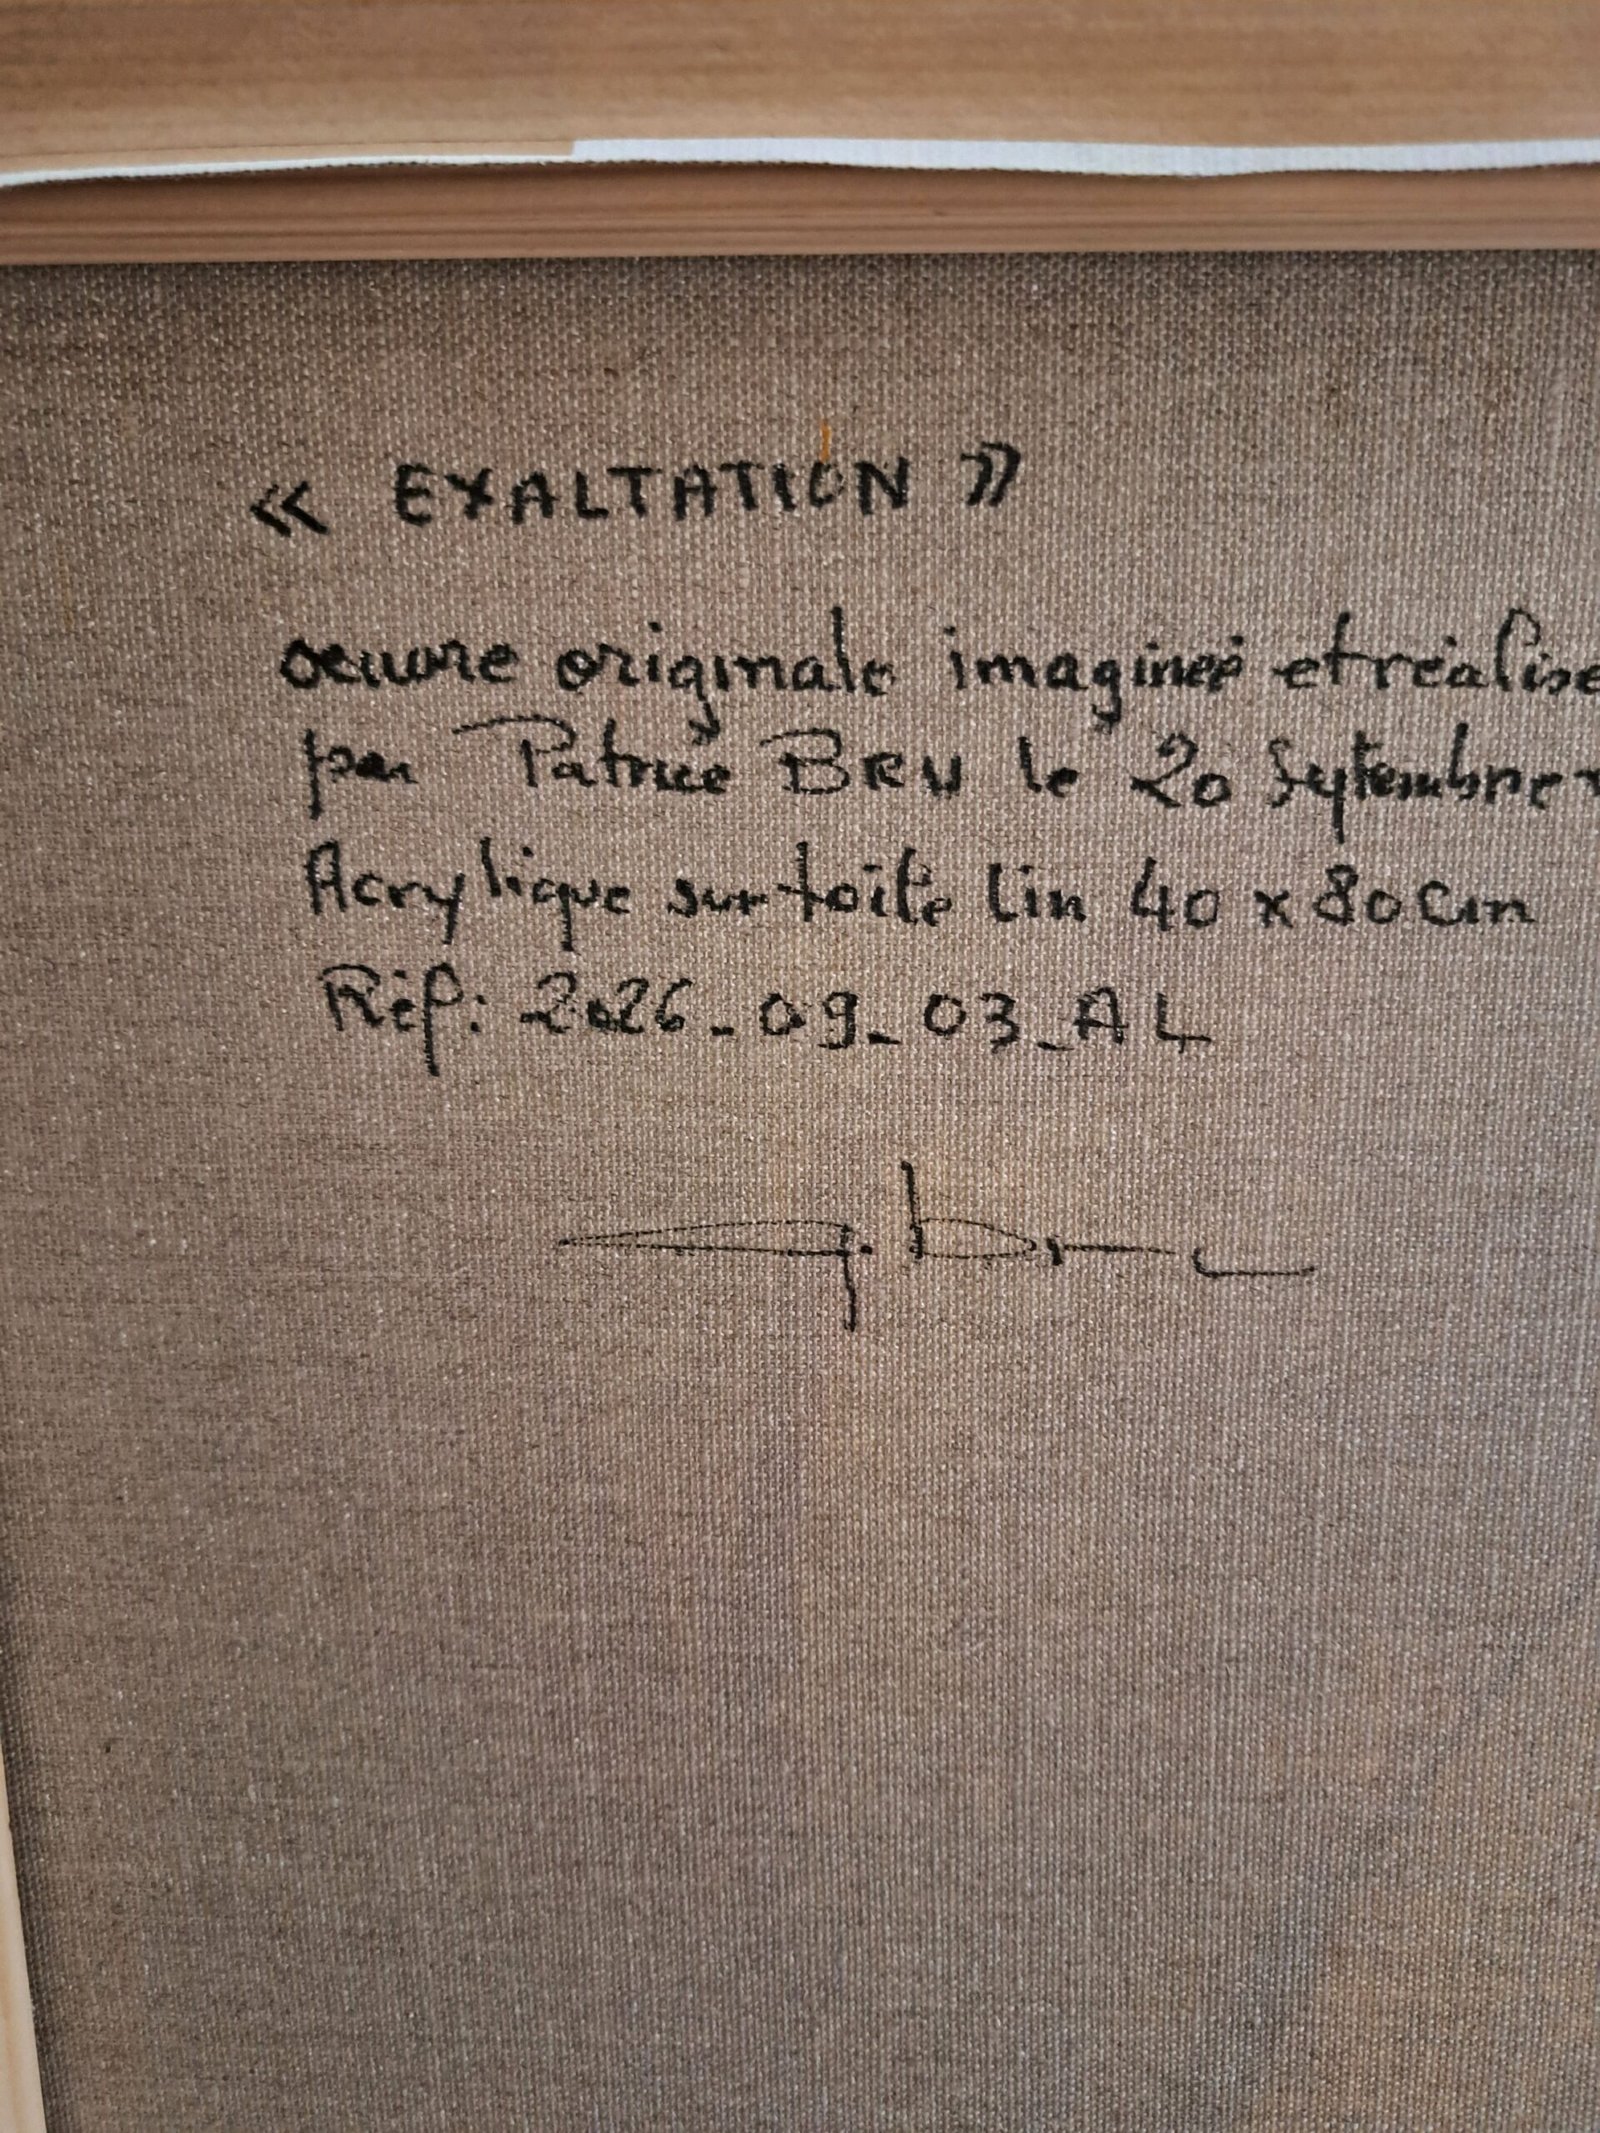 « EXALTATION »
œuvre originale imaginée et réalisé
par Patrice BRU le 20 Septembre
Acrylique sur toile lin 40 x 80 cm
Réf: 2026_09_03_AL